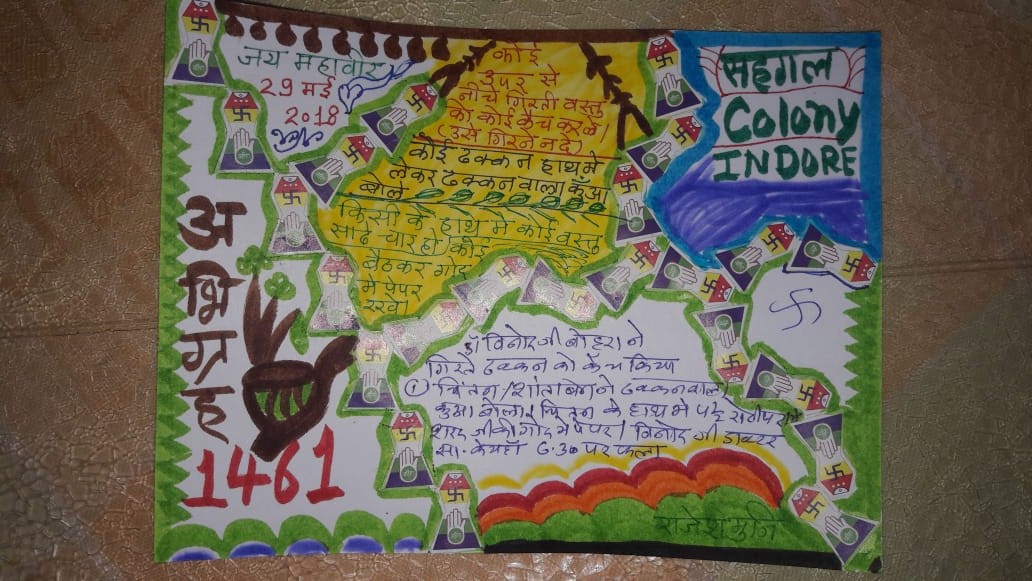 जय महावीर
29 मई
2018
अ
भि
ग्र
ह
1461
कोई
उपर से
नीचे गिरती वस्तु
को कोई कैच करले
(उसे गिरने न दे)
कोई ढक्कन हाथ मे
लेकर ढक्कन वाला कुआ
बोले
किसी के हाथ मे कोई वस्तु
साढे चार हो कोई
बैठकर गोद
मे पेपर
रखे।
सहगल
Colony
INDORE
डॉ विनोद जी बोहरा ने
गिरते ढक्कन को कैच किया
① चिंतन/शांता बेन ने ढक्कनवाला
कुआ बोला। चिंतन के हाथ मे
शरद जी की गोद मे पेपर। विनोद जी डाक्टर
सा. के यहाँ 6.30 पर फला
राजेश मुनि